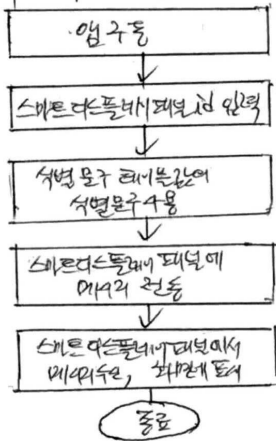 앱 구동
스마트 디스플레이 패널 id 입력
식별 문구 테이블값에
식별문구 사용
스마트디스플레이 패널에
메시지 전송
스마트 디스플레이 패널에서
메시지수신, 화면에 표시
종료